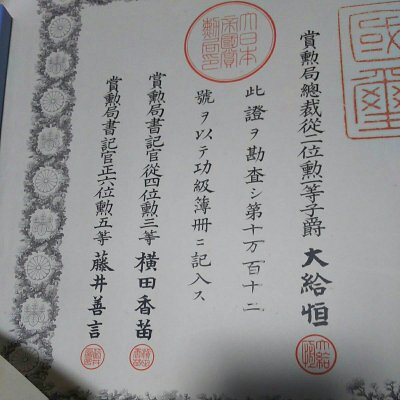 國璽
賞勲局總裁從二位勲一等子爵大給恒
大給恒
大日本帝國賞勲局印
此證ヲ勘査シ第十万百十二
號ヲ以テ功級簿册ニ記入ス
賞勲局書記官從四位勲三等横田香苗
賞勲局書記官正六位勲五等藤井善言